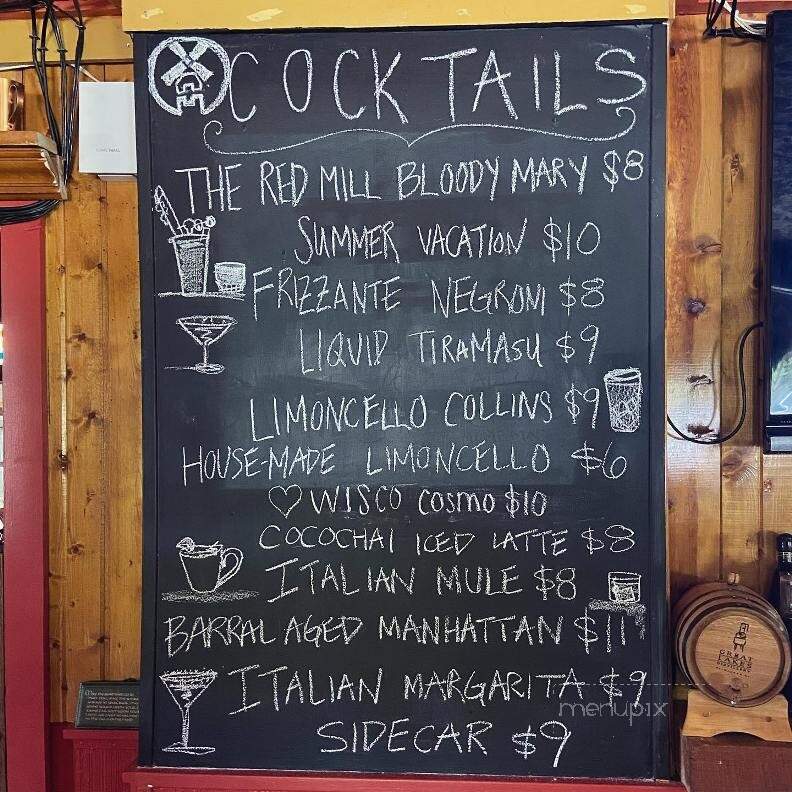 COCKTAILS
THE RED MILL BLOODY MARY $8
SUMMER VACATION $10
FRIZZANTE NEGRONI $8
LIQUID TIRAMASU $9
LIMONCELLO COLLINS $9
HOUSE-MADE LIMONCELLO $6
♡ WISCO COSMO $10
COCOCHAI ICED LATTE $8
ITALIAN MULE $8
BARRAL AGED MANHATTAN $11
ITALIAN MARGARITA $9
SIDECAR $9
menupix
GREAT
LAKES
DISTILLERY